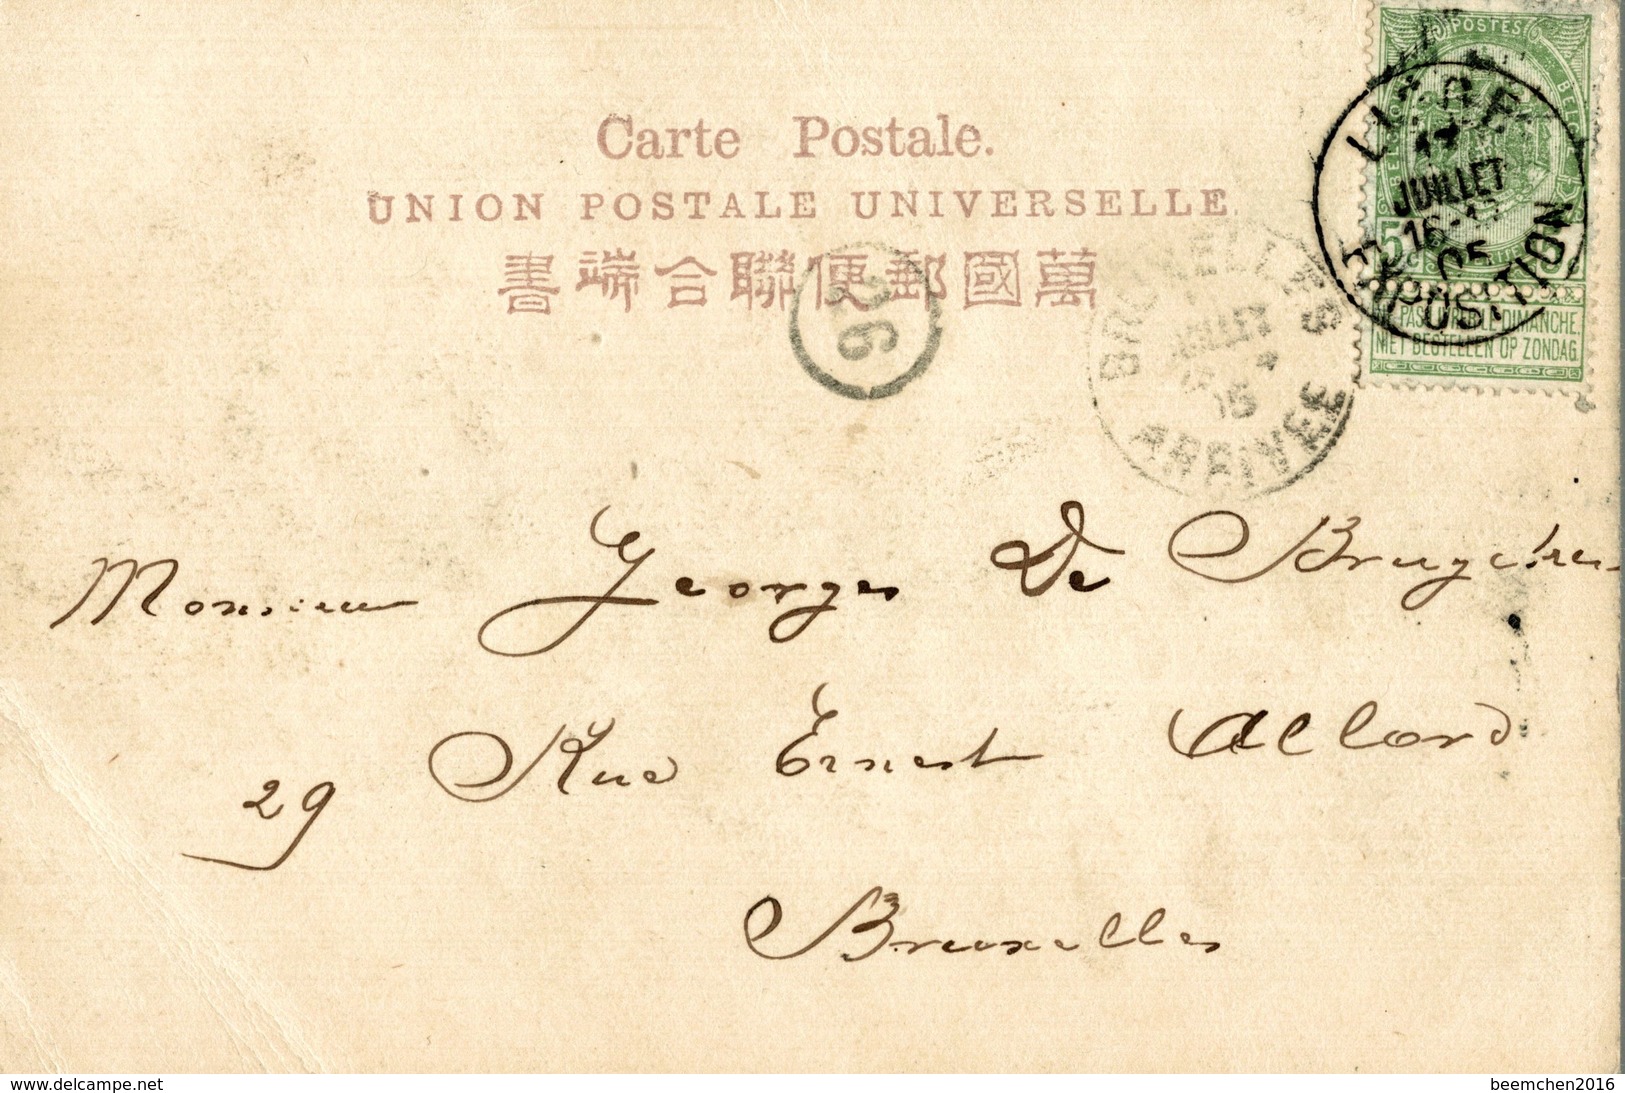 Carte Postale.
UNION POSTALE UNIVERSELLE.
書端合聯便郵國萬
POSTES
5
NE PAS LIVRER LE DIMANCHE.
NIET BESTELLEN OP ZONDAG
LIEGE
17
JUILLET
16-17
05
EXPOSITION
BRUXELLES
JUILLET
05
ARRIVEE
26
Monsieur Georges De Bruyckere
29 Rue Ernest Allard
Bruxelles
www.delcampe.net
beemchen2016